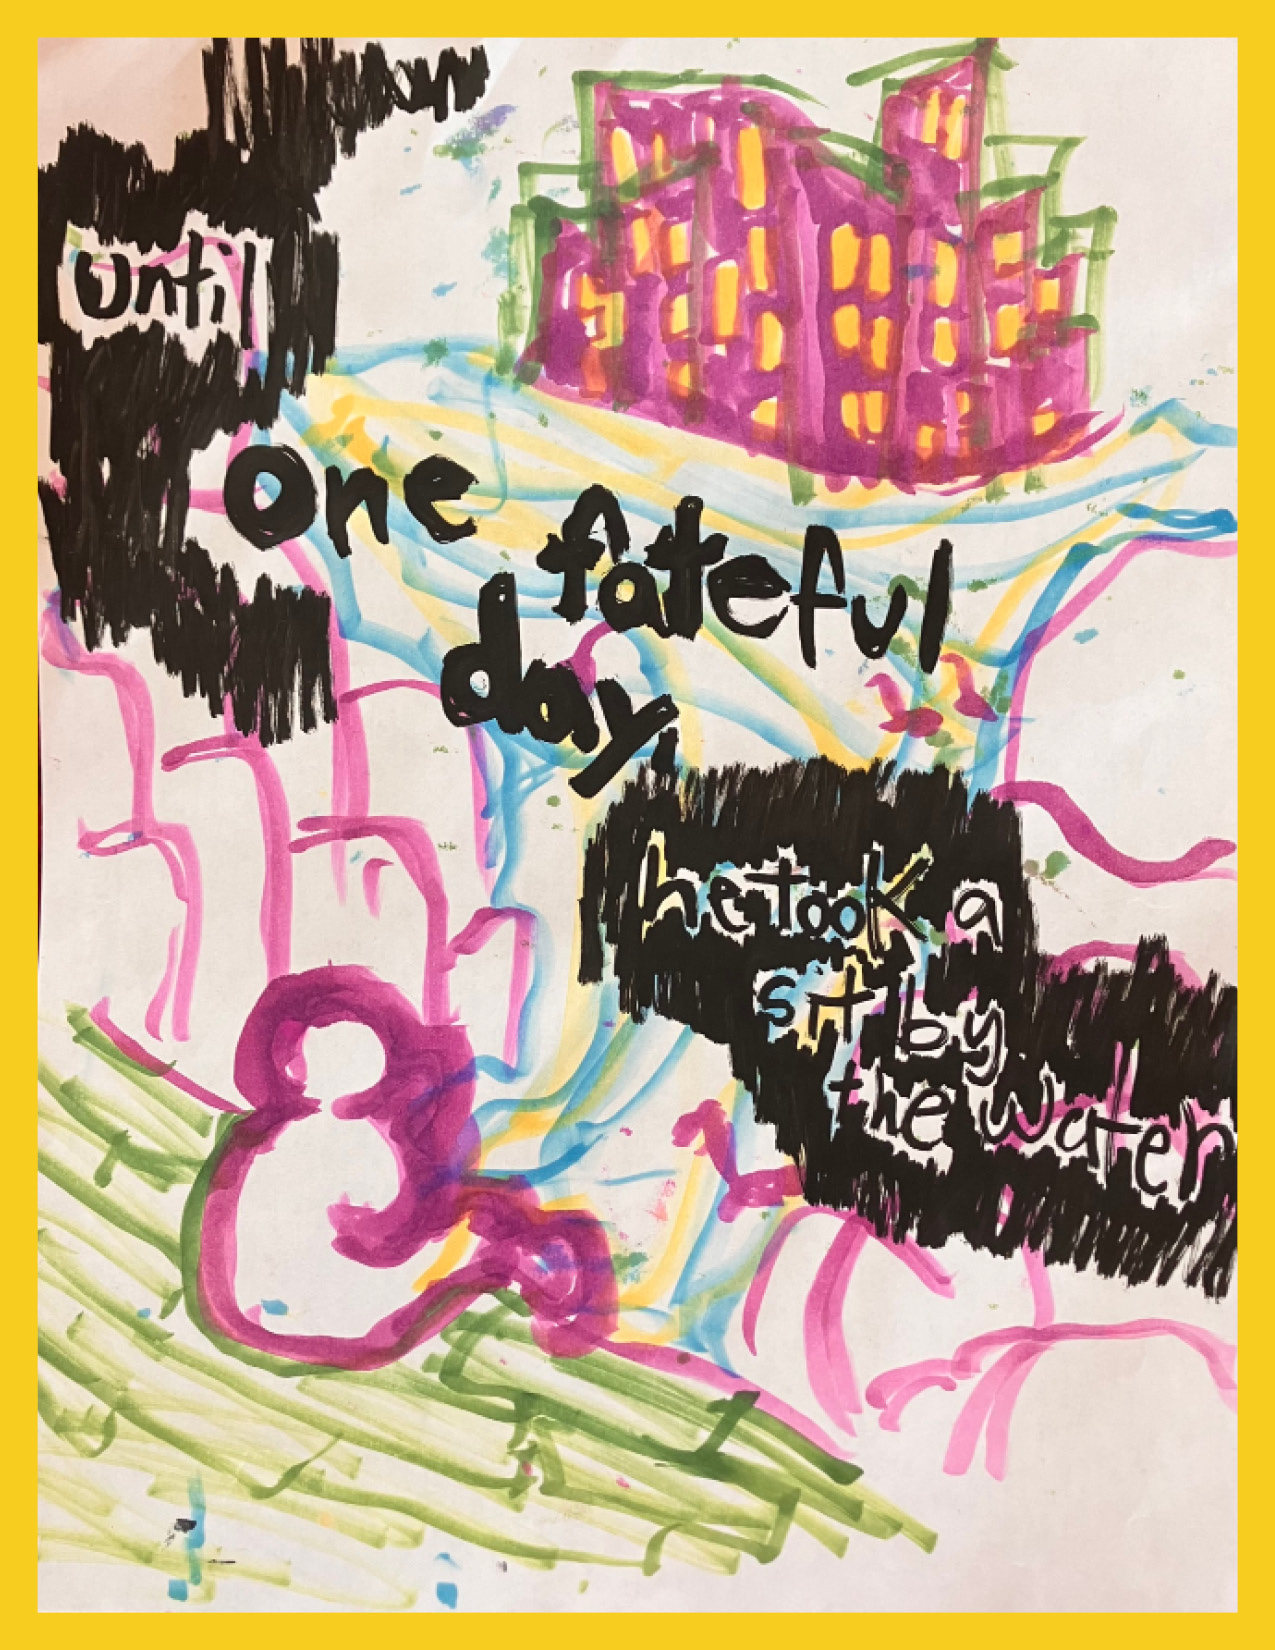 until
one
fateful
day,
he took a
sit by
the water